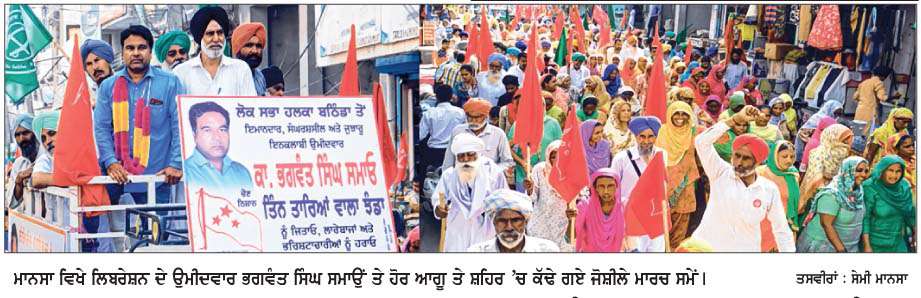 ਲੋਕ ਸਭਾ ਹਲਕਾ ਬਠਿੰਡਾ ਤੋਂ
ਇਮਾਨਦਾਰ, ਸੰਘਰਸ਼ਸ਼ੀਲ ਅਤੇ ਜੁਝਾਰੂ
ਇਨਕਲਾਬੀ ਉਮੀਦਵਾਰ
ਕਾ. ਭਗਵੰਤ ਸਿੰਘ ਸਮਾਓ
ਚੋਣ
ਨਿਸ਼ਾਨ
ਤਿੰਨ ਤਾਰਿਆਂ ਵਾਲਾ ਝੰਡਾ
ਨੂੰ ਜਿਤਾਓ, ਲਾਰੇਬਾਜਾਂ ਅਤੇ
ਭਰਿਸ਼ਟਾਚਾਰੀਆਂ ਨੂੰ ਹਰਾਓ
ਮਾਨਸਾ ਵਿਖੇ ਲਿਬਰੇਸ਼ਨ ਦੇ ਉਮੀਦਵਾਰ ਭਗਵੰਤ ਸਿੰਘ ਸਮਾਉਂ ਤੇ ਹੋਰ ਆਗੂ ਤੇ ਸ਼ਹਿਰ 'ਚ ਕੱਢੇ ਗਏ ਜੋਸ਼ੀਲੇ ਮਾਰਚ ਸਮੇਂ।
ਤਸਵੀਰਾਂ : ਸੇਮੀ ਮਾਨਸਾ